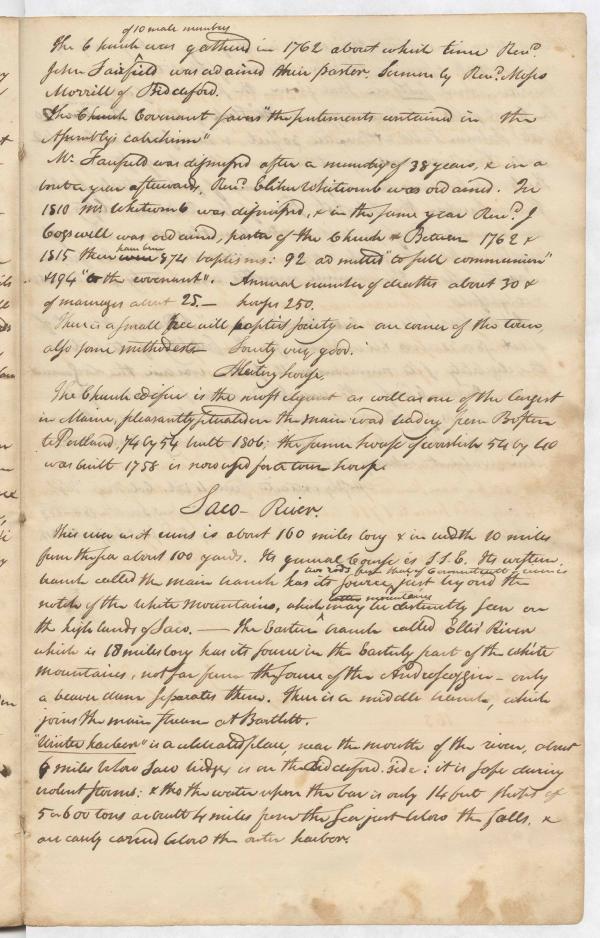 of 10 male members
The Church was gathered in 1762 about which time Revd.
John Fairfield was ordained their pastor. Sermon by Revd. Moses
Morrill of Biddeford.
The Church Covenant favors "the sentiments contained in the
Assembly's catechism"
Mr. Fairfield was dismissed after a ministry of 38 years, & in a
year afterwards, Revd. Elihu Whitcomb was ordained. In
1810 Mr. Whitcomb was dismissed, & in the same year Revd. J
Cogswell was ordained, pastor of the Church & Between 1762 &
have been
1815 there were 874 baptisms: 92 admitted "to full communion"
& 194 "to the covenant". Annual number of deaths about 30 &
of marriages about 25.— houses 250.
There is a small free will baptist society in one corner of the town,
also some methodests— Society very good.
Meeting house.
The Church edifice is the most elegant as well as one of the largest
in Maine, pleasantly situated on the main road leading from Boston
to Portland. 74 by 54 built 1806; the former house of worship 54 by 40
was built 1758 is now used for a town house
Saco- River.
This river as it runs is about 160 miles long & in width 10 miles
from the sea about 100 yards. Its general Course is S.S.E. Its western
two rods from that of Connecticut
branch called the main branch has its source just beyond the
notch of the White Mountains, which may be distinctly seen on
mountains
the high lands of Saco. — The Eastern branch called Ellis River
which is 18 miles long has its source in the Easterly part of the white
mountains, not far from the source of the Androscoggin - only
a beaver dam separates them. There is a middle branch, which
joins the main stream at Bartlett.
"Winter harbor" is a celebrated place, near the mouth of the river, about
6 miles below Saco bridges is on the Biddeford side: it is safe during
violent storms: & tho the water upon the bar is only 14 feet ships of
5 or 600 tons are built 4 miles from the Sea just below the falls, &
are easily carried below the outer harbor.